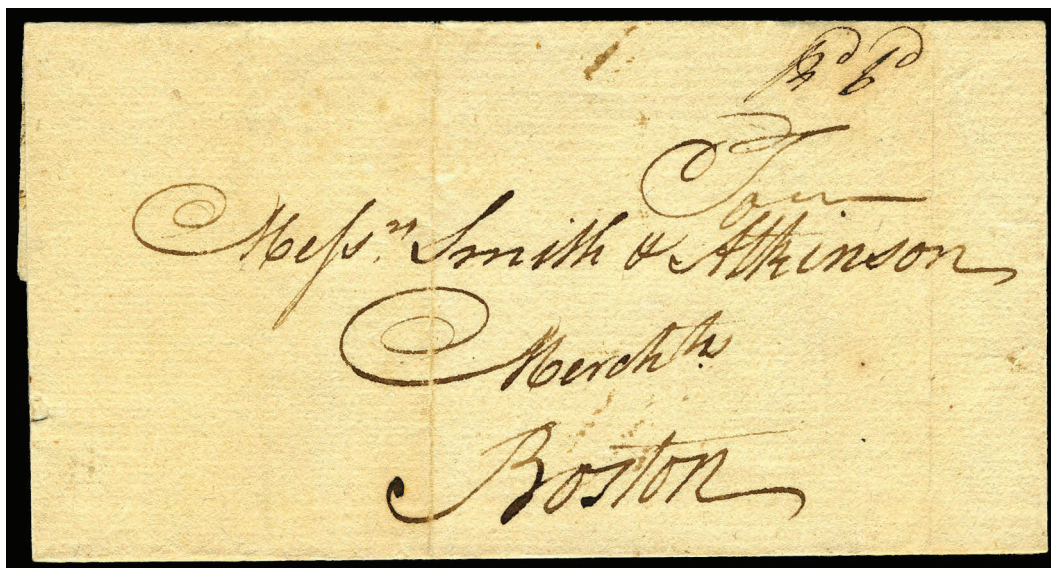 Meſsʳˢ. Smith & Atkinson
Merchᵗˢ.
Boston